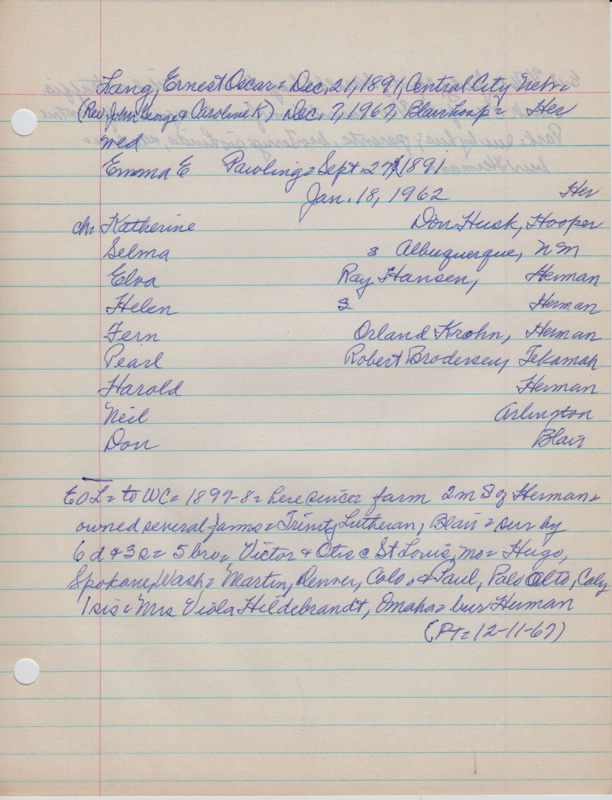 Lang, Ernest Oscar = Dec, 21, 1891, Central City Nebr.
(Rev John George & Caroline K) Dec. 7, 1967, Blair hosp = Her
wed
Emma E Rawling = Sept 27, 1891
Jan. 18, 1962 Her
ch: Katherine Don Husk, Hooper
Selma s Albuquerque, NM
Elva Ray Hansen, Herman
Helen s Herman
Fern Orland Krohn, Herman
Pearl Robert Brodersen, Tekamah
Harold Herman
Neil Arlington
Don Blair
EOL = to WC = 1897-8 = here since = farm 2m S of Herman =
owned several farms = Trinity Lutheran, Blair = surv by
6 d & 3 s = 5 bro = Victor & Otis @ St Louis, mo = Hugo,
Spokane, Wash = Martin, Denver, Colo. & Paul, Palo Alto, Calif
1 sis = Mrs Viola Hildebrandt, Omaha = bur Herman
(Pt = 12-11-67)